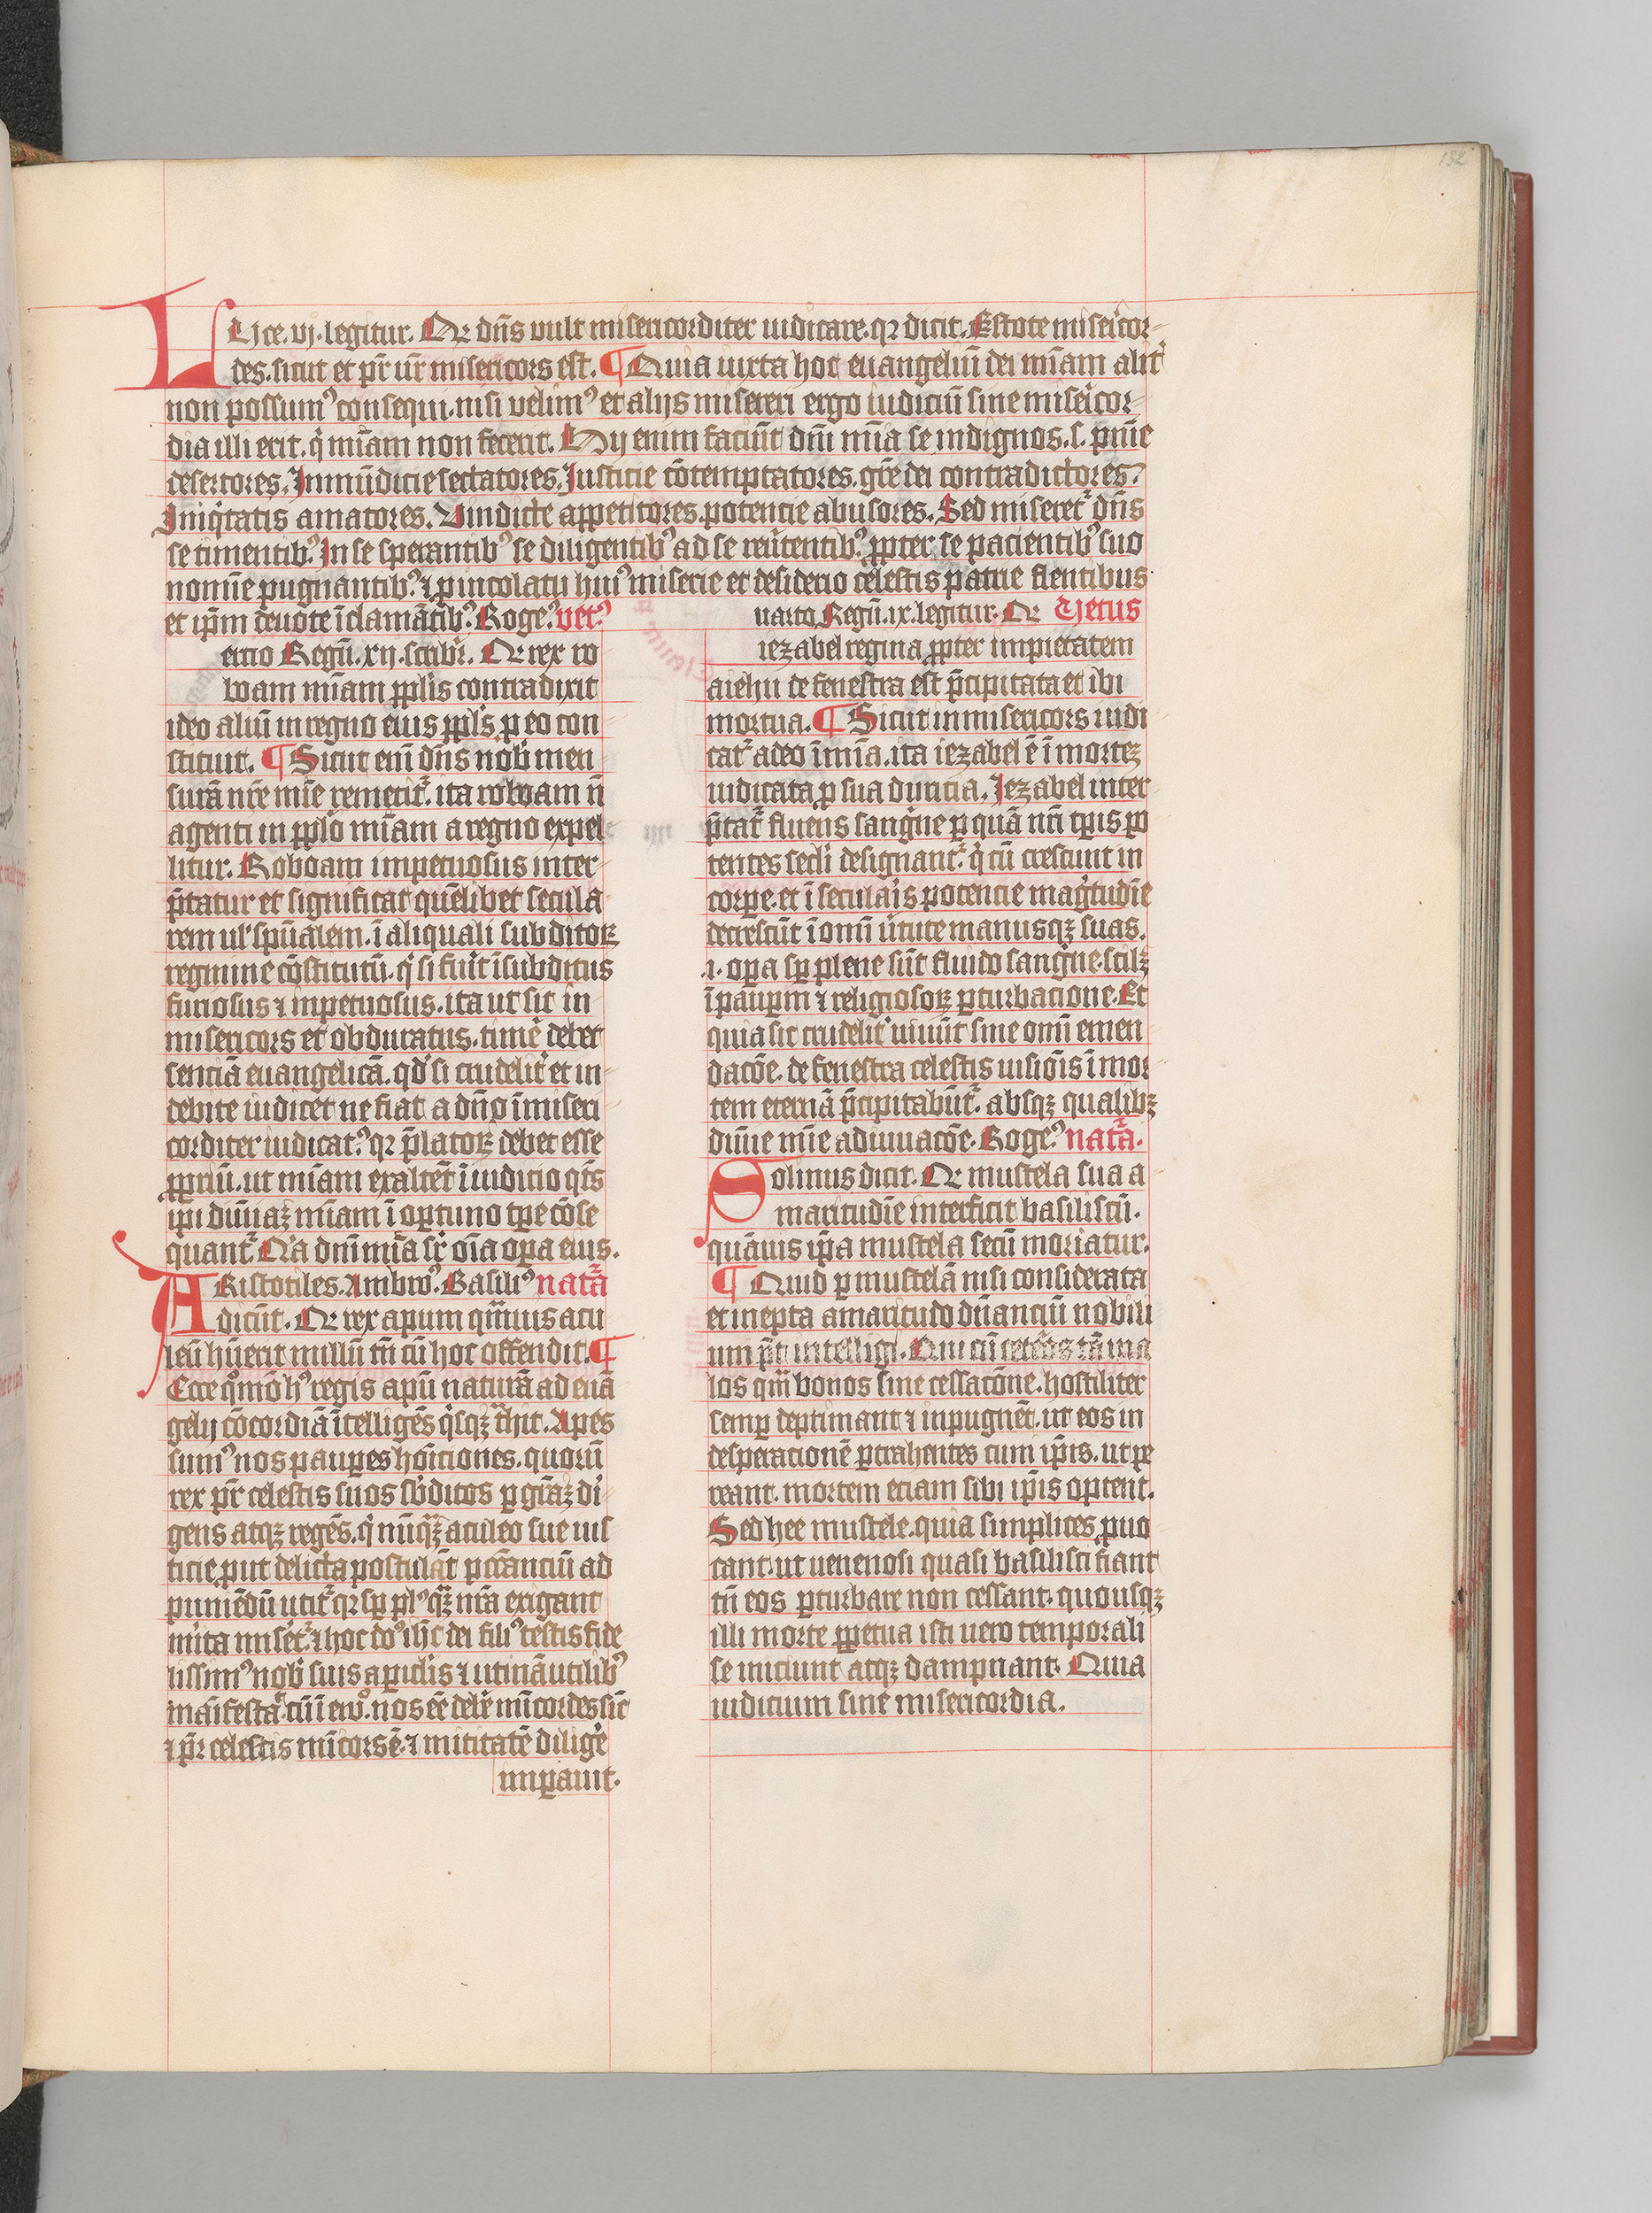 132
LUce. vj. legitur. Qr dn̄s vult misericorditer iudicare. qr dicit. Estote miseʳicor-
des. sicut et pr̄ vr̄ misericors est. ¶ Quia iuxta hoc euangeliū dei mīam alitʳ
non possumꝰ consequi. nisi velimꝰ et alijs misereri ergo iudiciū sine miseʳicor-
dia illi erit. qⁱ mīam non fecerit. Hij enim faciūt dn̄i mīa se indignos. s. pn̄ie
desertores. Inmūdicie sectatores. Justicie cōtemptatores. gr̄e dei contradictores.
Iniqⁱtatis amatores. Vindicte appetitores. potencie abusores. Sed miseretʳ dn̄s
se timentibꝰ. In se sperantibꝰ se diligentibꝰ ad se reuʳtentibꝰ. ꝓpter se pacientibꝰ suo
nomīe pugnantibꝰ. ⁊ ꝓ incolatu huiꝰ miserie et desiderio celestis patrie flentibus
et ip̄m deuote īclamātibꝰ. Rogeꝰ. vetꝰ
ercio Regū. xij. scribiʳ. Qr rex ro
boam mīam ꝓplis contradixit
ideo aliū in regno eius ꝓpl's ꝓ eo con
stituit. ¶ Sicut eni dn̄s nob̄ men
surā nr̄e mīe remetitʳ. ita roboam n̄
agenti in ꝓplo mīam a regno expel-
litur. Roboam impetuosus inter-
p̄tatur et significat quēlibet secula-
rem ul' spūalem. ī aliquali subditoꝝ
regimine cōstitutū. qⁱ si fuʳit ī subditus
furiosus ⁊ inpetuosus. ita ut sit in
misericors et obduratus. timeʳ debet
sentēciā euangelicā. qd' si crudelitʳ et in-
debite iudicet ne fiat a dn̄o īmiseri
corditer iudicatꝰ. qr p̄latoꝝ debet esse
ꝓpriū. ut mīam exaltēt ī iudicio qⁱt̄s
ip̄i diuināꝫ mīam ī oꝑtuno tꝑe cōse
quantʳ. Nᵃ dn̄i mīa suꝑ oīa oꝑa eius.
ARistotiles. Ambroꝰ. Basiliꝰ natʳā
dicūt. Qr rex apum qᵐuis acu
leū hūerit nullū tn̄ cū hoc offendit. ¶
Ecce qᵒmō hꝰ regis apū naturā ad euā
gelij cōcordiā ītelligēs qⁱsqꝫ ait. Apes
sumꝰ nos pauꝑes hōiciones. quorū
rex pr̄ celestis suos sb̄ditos ꝑ gr̄aꝫ di
gens atqꝫ regēs. qⁱ nūqᵃꝫ aculeo sue ius
ticie ꝓut delicta postulāt pccantiū ad
puniēdū utitʳ qr sꝑ plꝰ qᵃꝫ nr̄a exigant
mīta miseʳtʳ. ⁊ hoc dꝰ ih̄c dei filiꝰ testis fide
lissimꝰ nob̄ suis apicul'is ⁊ utinā utilibꝰ
māifestaᵗ. cū ī eunᵒ. nos eē debʳe mīcordes sīc
⁊ pr̄ celestis mīcors ē. ⁊ mititatē diligeʳe
inꝑauit.
uarto Regū. ix. legitur. Qr Vetus
iezabel regina ꝓpter impietatem
a iehu de fenestra est p̄cipitata et ibi
mortua. ¶ Sicut inmisericors iudi
catʳ a deo ī mīa. ita iezabel ē ī morteꝫ
iudicata ꝓ sua duricia. Jezabel inter
p̄tatʳ fluens sangⁱne ꝑ quā nr̄i tꝑis po
tentes sec'li designantʳ. qⁱ cū crescunt in
corꝑe. et ī secularis potencie magⁱtudīe
decrescūt ī omī uʳtute manusqꝫ suas.
.i. oꝑa sꝑ plene sūt fluido sangⁱne. scilꝫ
ī pauꝑm ⁊ religiosoꝝ ꝑturbacione. Et
quia sic crudelitʳ uiuūt sine omī emen
dacōe. de fenestra celestis uisiōis ī mor
tem eternā p̄cipitabūtʳ. absqꝫ qualibꝫ
diuīe mīe adiuuacōe. Rogeꝰ. natʳā.
Solinus dicit. Qr mustela sua a
maritudīe interficit basiliscū.
quāuis ip̄a mustela secū moriatur.
¶ Quid ꝑ mustelā nisi considerata
et inepta amaritudo dn̄anciū nobili
um p̄t intelligi. Qui cū ceteʳos tā ma
los qᵐ bonos sine cessacōne. hostiliter
semꝑ deprimant ⁊ inpugnēt. ut eos in
desperacionē ꝑtrahentes cum ip̄is. ut pe
reant. mortem eciam sibi ip̄is optent.
Sed hee mustele. quia simplices ꝓuo
cant. ut uenenosi quasi basilisci fiant
tn̄ eos ꝑturbare non cessant. quousqꝫ
illi morte ꝑpetua isti uero temporali
se iniciunt atqꝫ dampnant. Quia
iudicium sine misericordia.